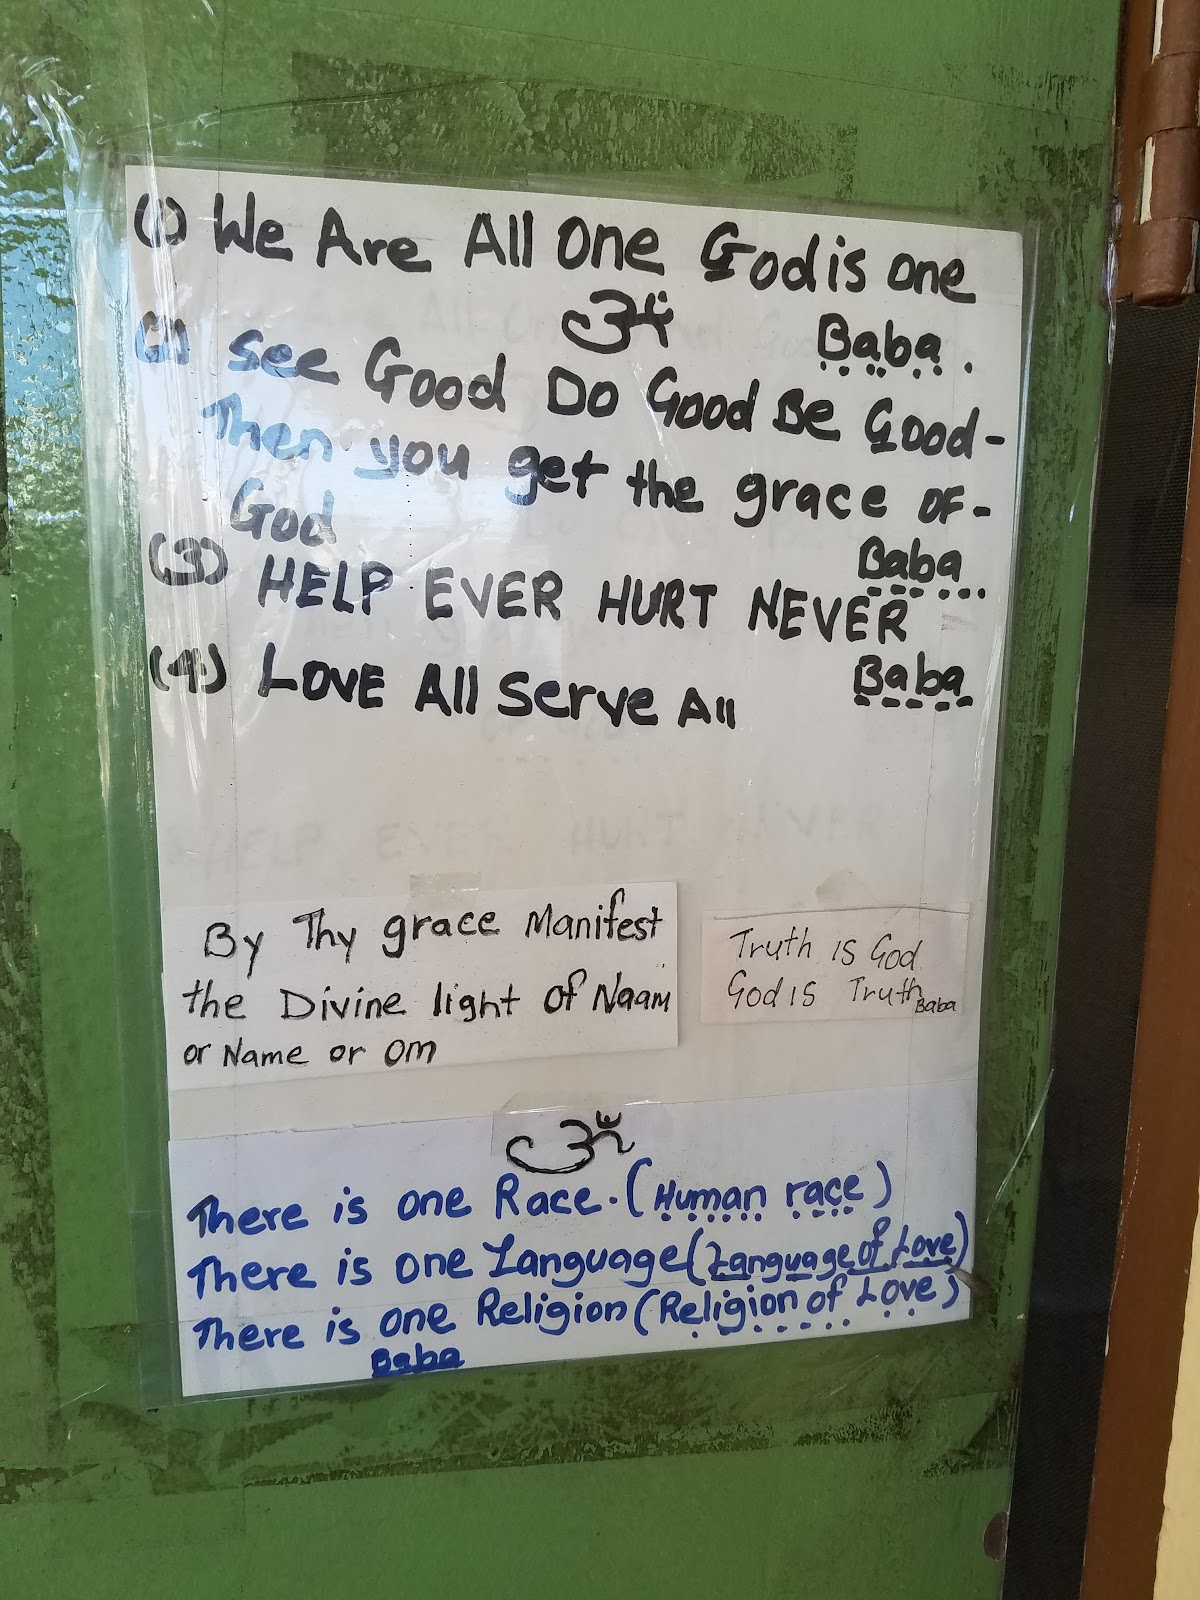 (1) We Are All One God is one
ॐ Baba.
(2) See Good Do Good Be Good-
Then you get the grace OF-
God
Baba
(3) HELP EVER HURT NEVER
(4) LOVE All Serve All Baba
By Thy grace Manifest
the Divine light of Naam
or Name or Om
Truth is God
God is Truth
Baba
ॐ
There is one Race. (Human race)
There is one Language (Language of Love)
There is one Religion (Religion of Love)
Baba